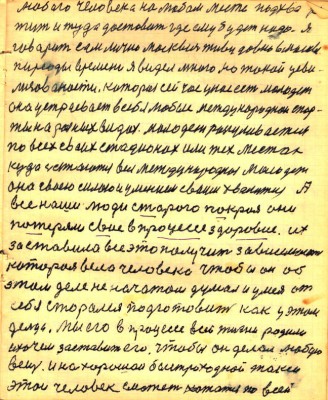 любого человека на любом месте подхва
тит и туда доставит где ему будет надо. Я
говорит сам лично москвич живу давно в Москве
периоды времени я видел много но такой циви
лизованости, которая сейчас у нас молодёж
она устраевает всебя любые международные спор
ты на разных видах. молодёж
по всех своих стадионах или тех местах
куда устают ты международные молодёж
она свою силою и умением своим хвалится А
все наши люди старого покроя они
потеряли свое в процессе здоровие. их
заставила все это получит зависимости
которая вела человека чтобы он об
этом деле не начатом думал и умел от
себя старался подготовит как у этом
делу. Мы его в процессе всей жизни родили
и хочем заставит его. чтобы он делал любую
вещу. и на хорошой быстроходной такси
этой человек сможет катат по всей